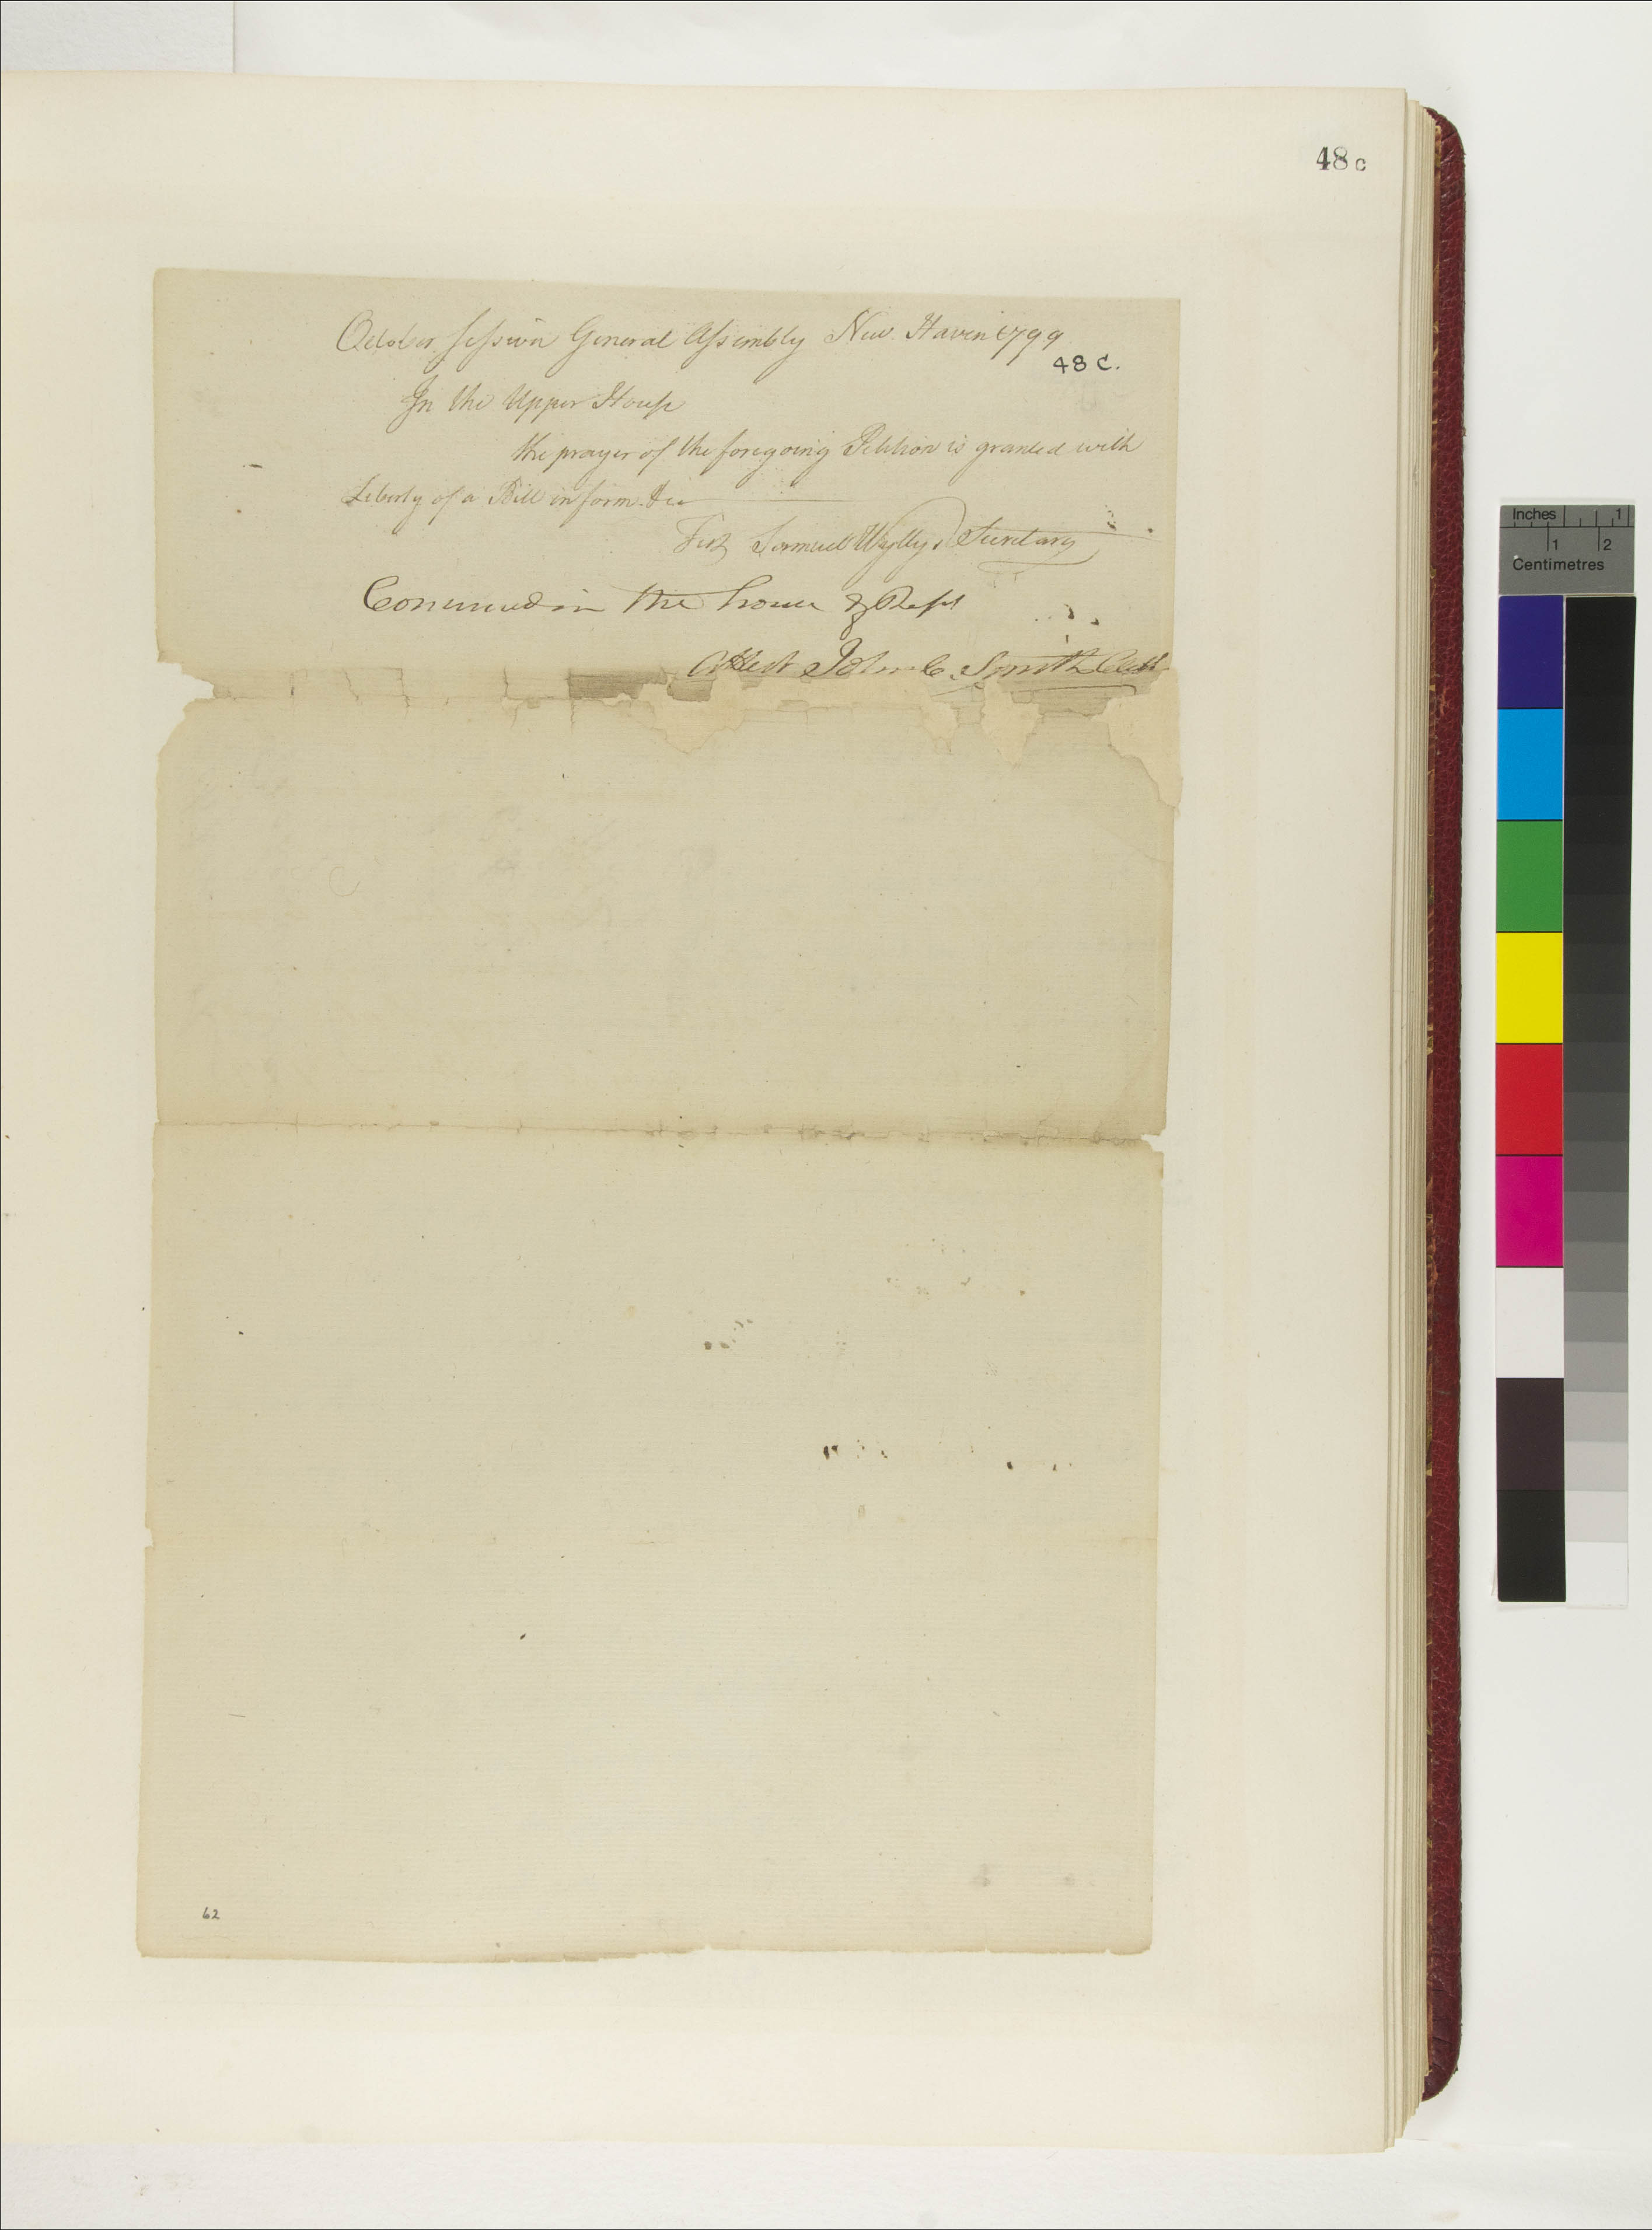 48 c
October session General Assembly New Haven 1799
48 C.
In the Upper House
the prayer of the foregoing Petition is granted with
Liberty of a Bill in form &c
Test Samuel Wyllys Secretary
Concurred in the house of Reps
Attest John C. Smith Clerk
62
Inches 1
1 2
Centimetres